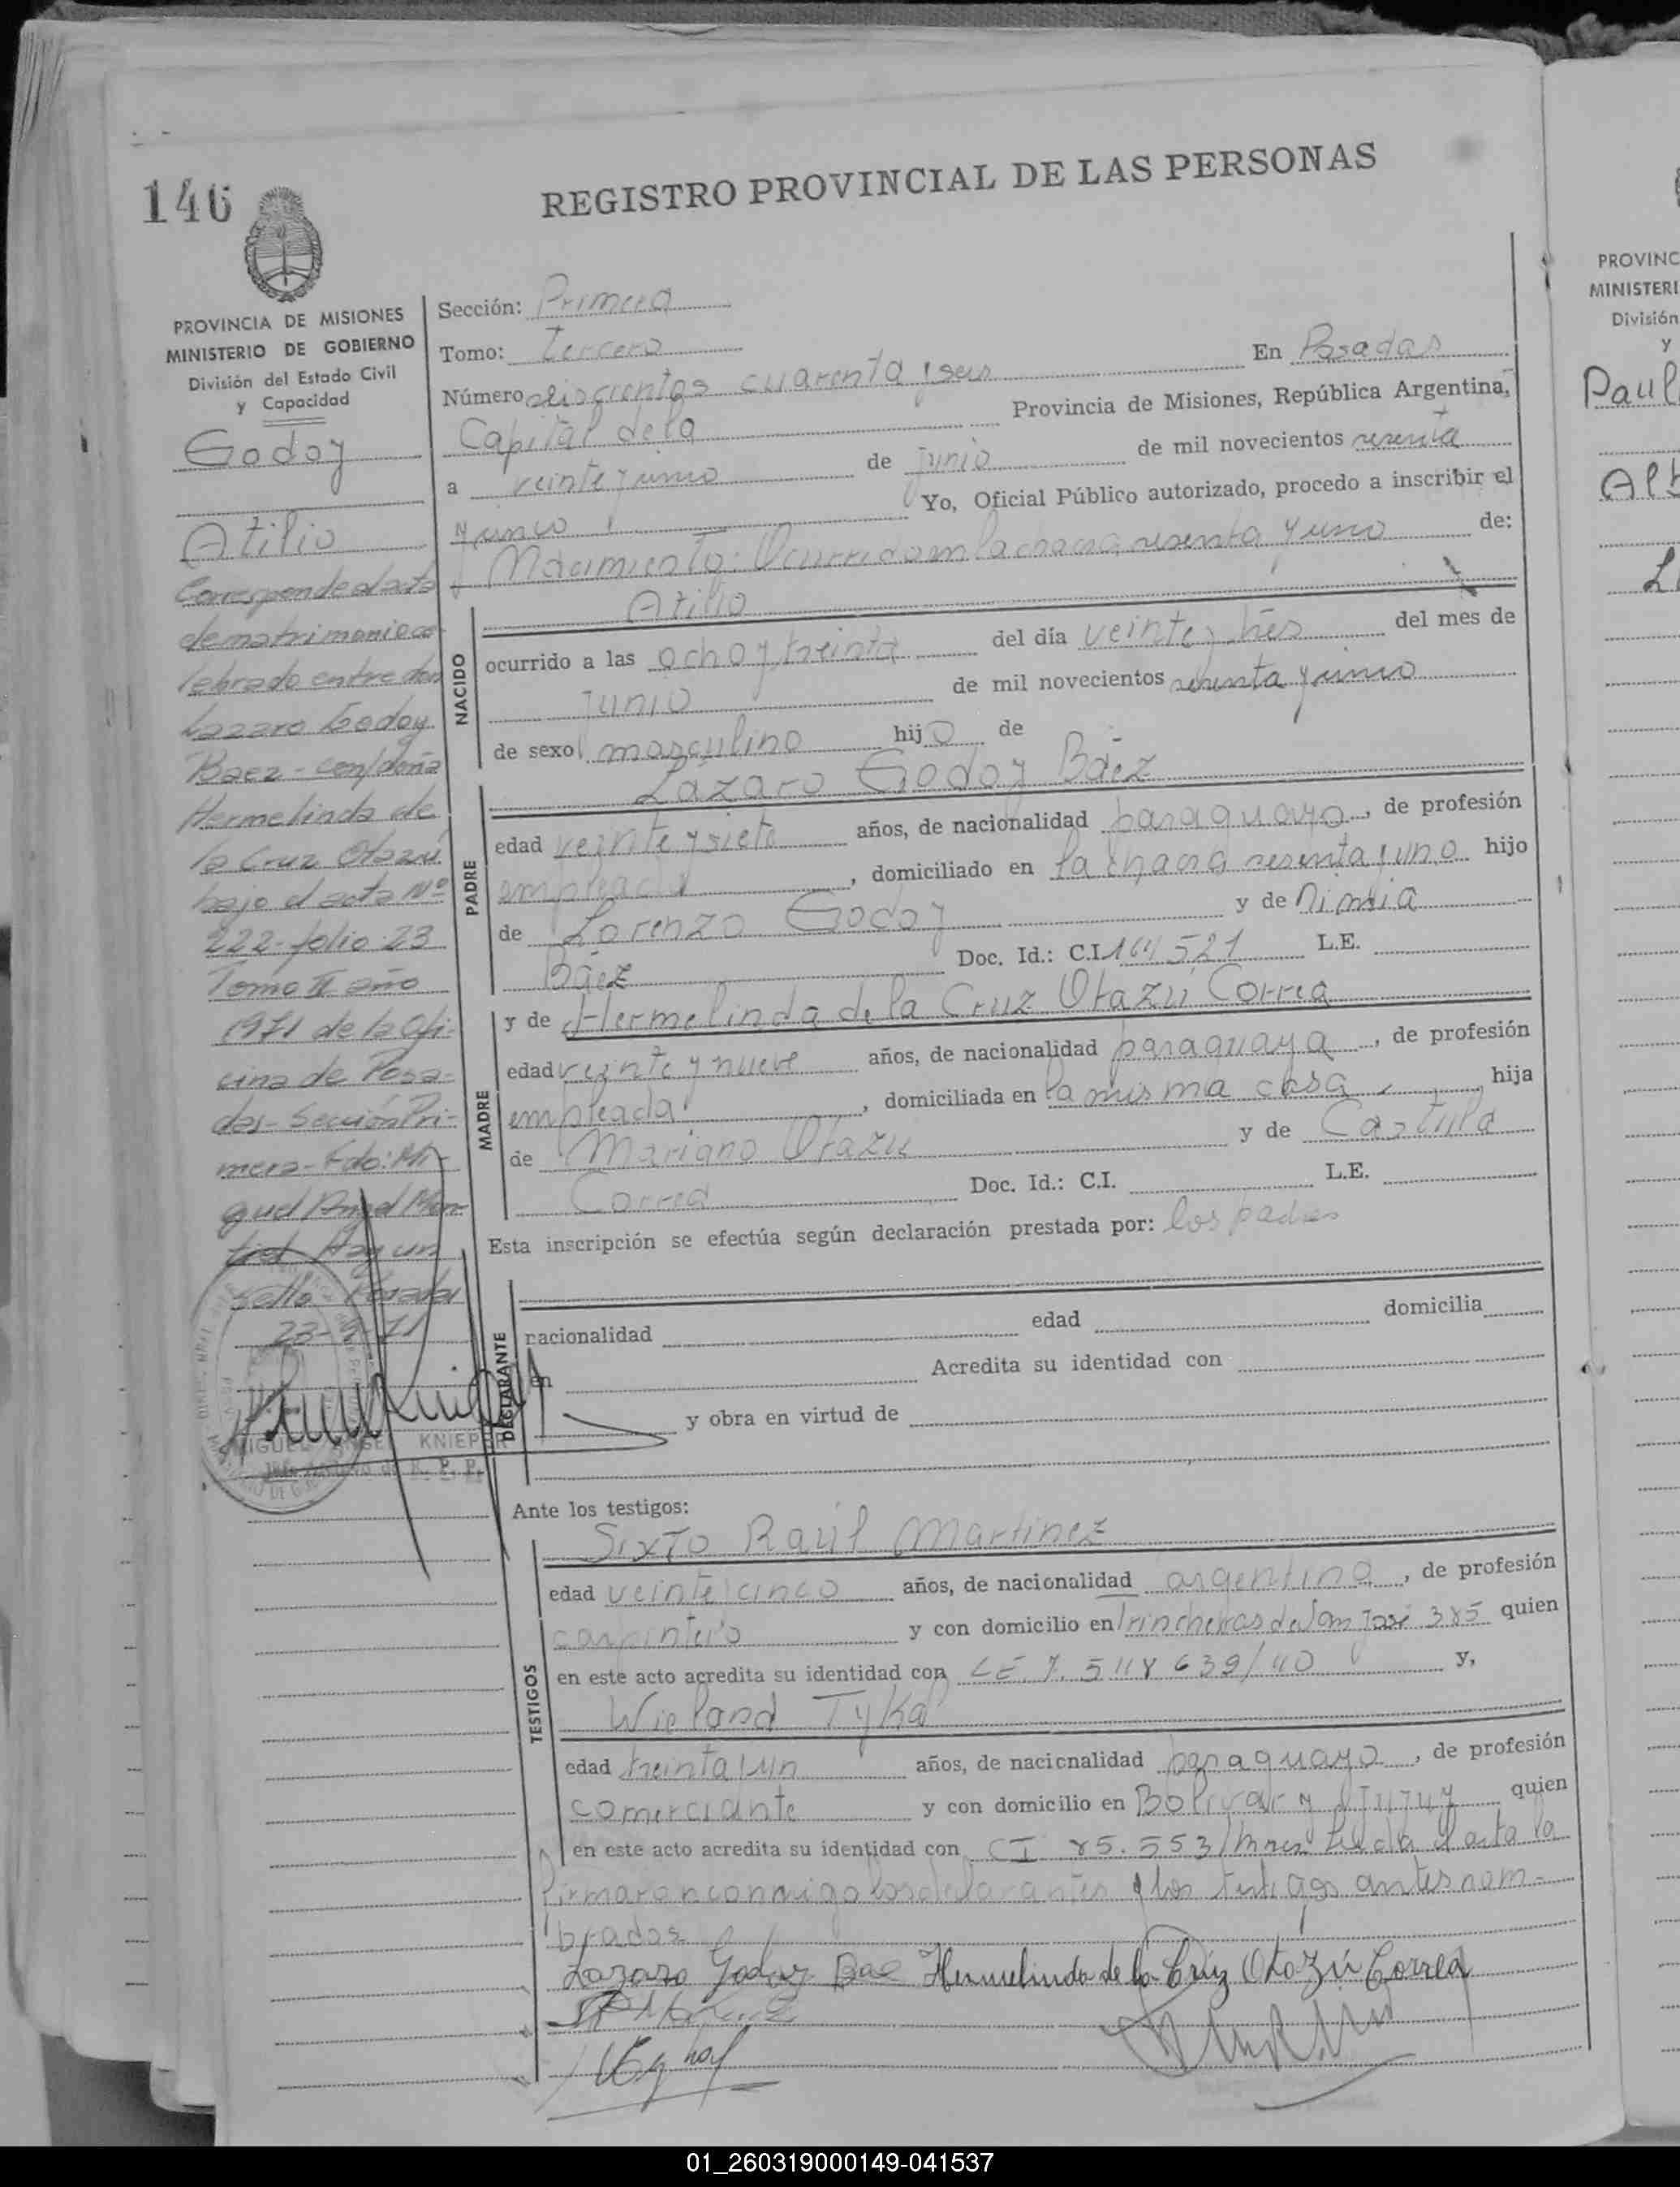 146
REGISTRO PROVINCIAL DE LAS PERSONAS
PROVINCIA DE MISIONES
MINISTERIO DE GOBIERNO
División del Estado Civil
y Capacidad
Godoy
Atilio
Corresponde al acta
de matrimonio ce-
lebrado entre don
Lazaro Godoy
Baez - con doña
Hermelinda de
la Cruz Otazú
bajo el acta Nº
222 - folio 23
Tomo II año
1971 de la Ofi-
cina de Posa-
das - Sección Pri-
mera - Fdo: Mi-
guel Angel
Hay un
sello - Posadas
23-9-71
MIGUEL ANGEL KNIEPER
Sección: Primera
Tomo: Tercero
Número doscientos cuarenta y seis En Posadas
Capital de la Provincia de Misiones, República Argentina,
a veinte y cinco de junio de mil novecientos sesenta
y cinco Yo, Oficial Público autorizado, procedo a inscribir el
Nacimiento: Ocurrido en la chacra sesenta y uno de:
NACIDO
Atilio
ocurrido a las ocho y treinta del día veinte y tres del mes de
junio de mil novecientos sesenta y cinco
de sexo masculino hijo de
PADRE
Lázaro Godoy Báez
edad veinte y siete años, de nacionalidad paraguayo, de profesión
empleado, domiciliado en la chacra sesenta y uno hijo
de Lorenzo Godoy y de Nimia
Báez Doc. Id.: C.I. 164.521 L.E.
MADRE
y de Hermelinda de la Cruz Otazú Correa
edad veinte y nueve años, de nacionalidad paraguaya, de profesión
empleada, domiciliada en la misma casa, hija
de Mariano Otazú y de Castula
Correa Doc. Id.: C.I. L.E.
Esta inscripción se efectúa según declaración prestada por: los padres
DECLARANTE
nacionalidad edad domicilia
en Acredita su identidad con
y obra en virtud de
Ante los testigos:
TESTIGOS
Sixto Raúl Martinez
edad veinte cinco años, de nacionalidad argentina, de profesión
carpintero y con domicilio en Trincheras de San José 385 quien
en este acto acredita su identidad con LE. 7. 639/40 y,
Wieland Tykal
edad treinta un años, de nacionalidad paraguayo, de profesión
comerciante y con domicilio en Bolivar y Jujuy quien
en este acto acredita su identidad con CI 85.553/Mnes Leida el acta la
firmaron conmigo los declarantes y los testigos antes nom-
brados
Lazaro Godoy Bae Hermelinda de la Cruz Otazú Correa
PROVINC
MINISTERI
División
y
Paul
Alb
01_260319000149-041537